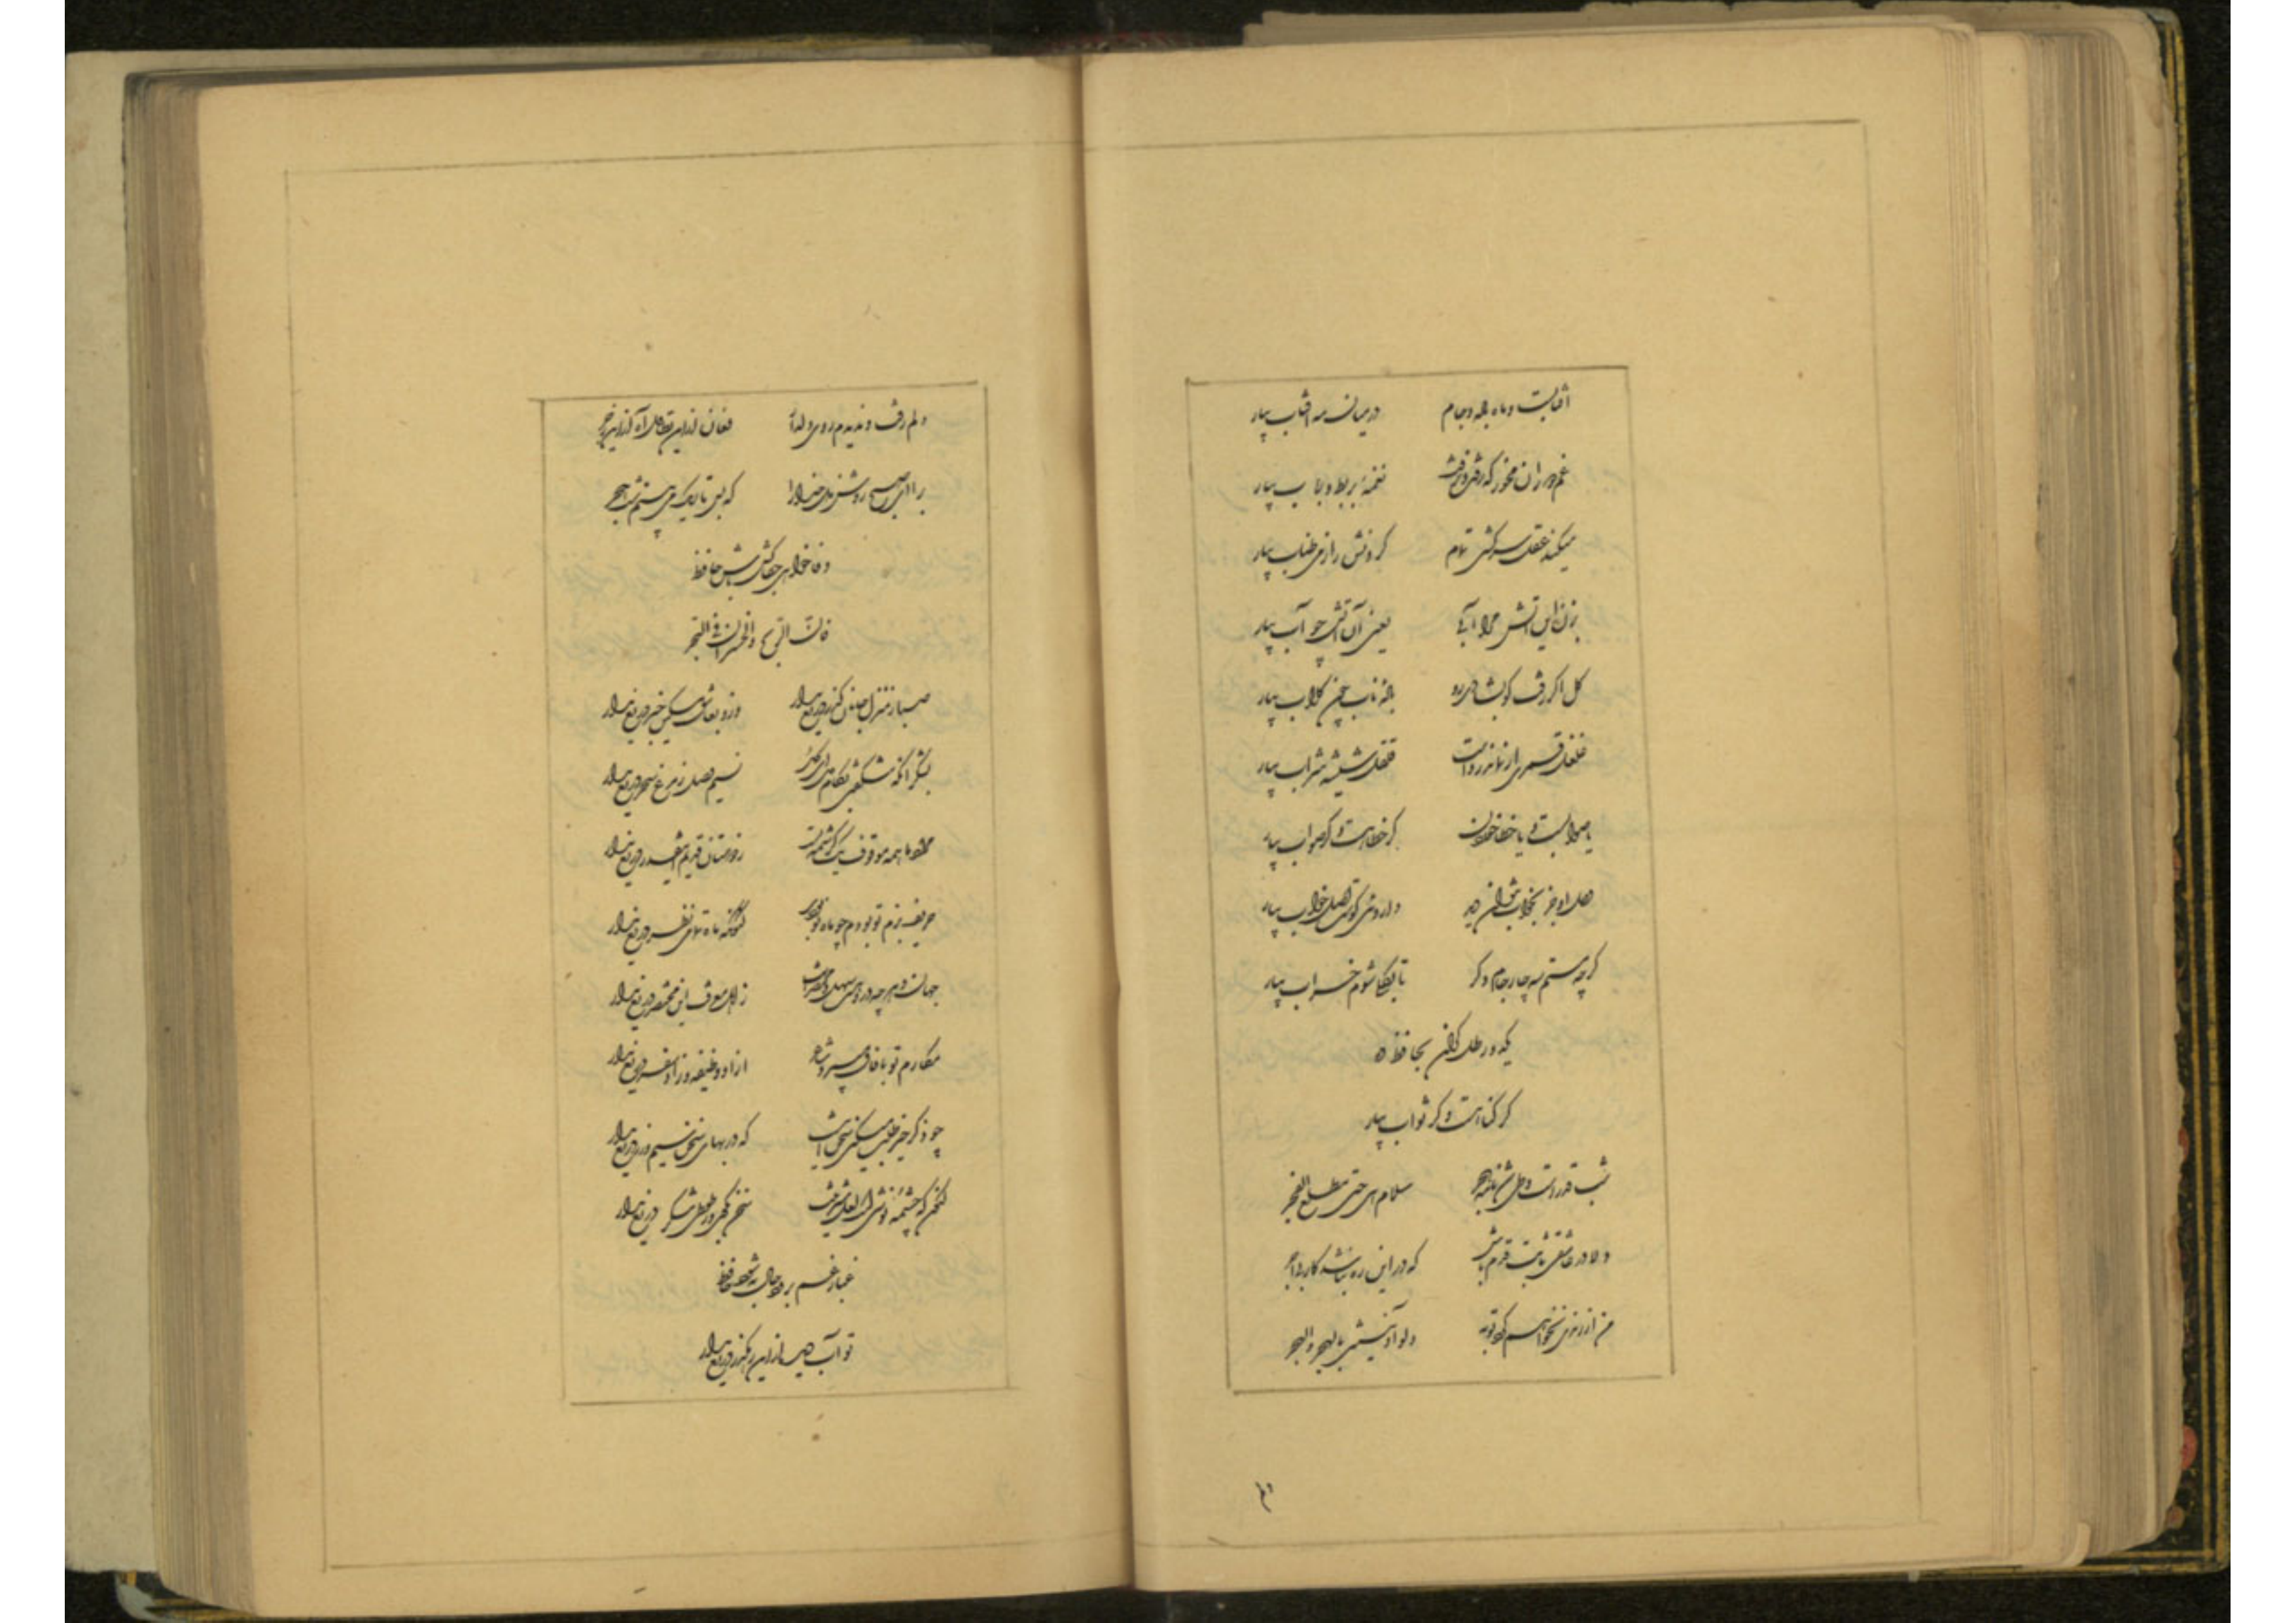 آفتابست و ماه باده و جام در میان مه آفتاب بیار
غم دوران مخور که رفت و رفت نغمهٔ بربط و رباب بیار
میکند عقل سرکشی تمام گردنش را ز می طناب بیار
بزن این آتش مرا آبی یعنی آن آتش چو آب بیار
گل اگر رفت گو بشادی رو بادهٔ ناب چون گلاب بیار
غلغل قمری ار نماند رواست قلقل شیشهٔ شراب بیار
یا صوابست و یا خطا خوردن گر خطا هست و گر صواب بیار
وصل او جز بخواب نتوان دید داروی کوست اصل خواب بیار
گرچه مستم سه چار جام دگر تا بکلی شوم خراب بیار
یک دو رطل گران بحافظ ده
گر گناهست و گر ثواب بیار
شب قدرست و طی شد نامهٔ هجر سلام هی حتی مطلع الفجر
دلا در عاشقی ثابت قدم باش که در این ره نباشد کار بی اجر
من از رندی نخواهم کرد توبه ولو آذیتنی بالهجر والحجر
دلم رفت و ندیدم روی دلدار فغان از این تطاول آه از این زجر
برآ ای صبح روشن دل خدا را که بس تاریک می بینم شب هجر
وفا خواهی جفاکش باش حافظ
فان الربح والخسران فی التجر
صبا ز منزل جانان گذر دریغ مدار وز و بعاشق مسکین خبر دریغ مدار
بشکر آنکه شکفتی بکام دل ای گل نسیم وصل ز مرغ سحر دریغ مدار
مراد ما همه موقوف یک کرشمهٔ تست ز دوستان قدیم این قدر دریغ مدار
حریف بزم تو بودم چو ماه نو بودی کنون که ماه تمامی نظر دریغ مدار
جهان و هر چه در او هست سهل و مختصرست ز اهل معرفت این مختصر دریغ مدار
مکارم تو بآفاق میبرد شاعر از او وظیفه و زاد سفر دریغ مدار
چو ذکر خیر طلب میکنی سخن اینست که در بهای سخن سیم و زر دریغ مدار
کنون که چشمهٔ نوش است لعل شیرینت سخن بگوی و ز طوطی شکر دریغ مدار
غبار غم برود حال به شود حافظ
تو آب دیده از این رهگذر دریغ مدار